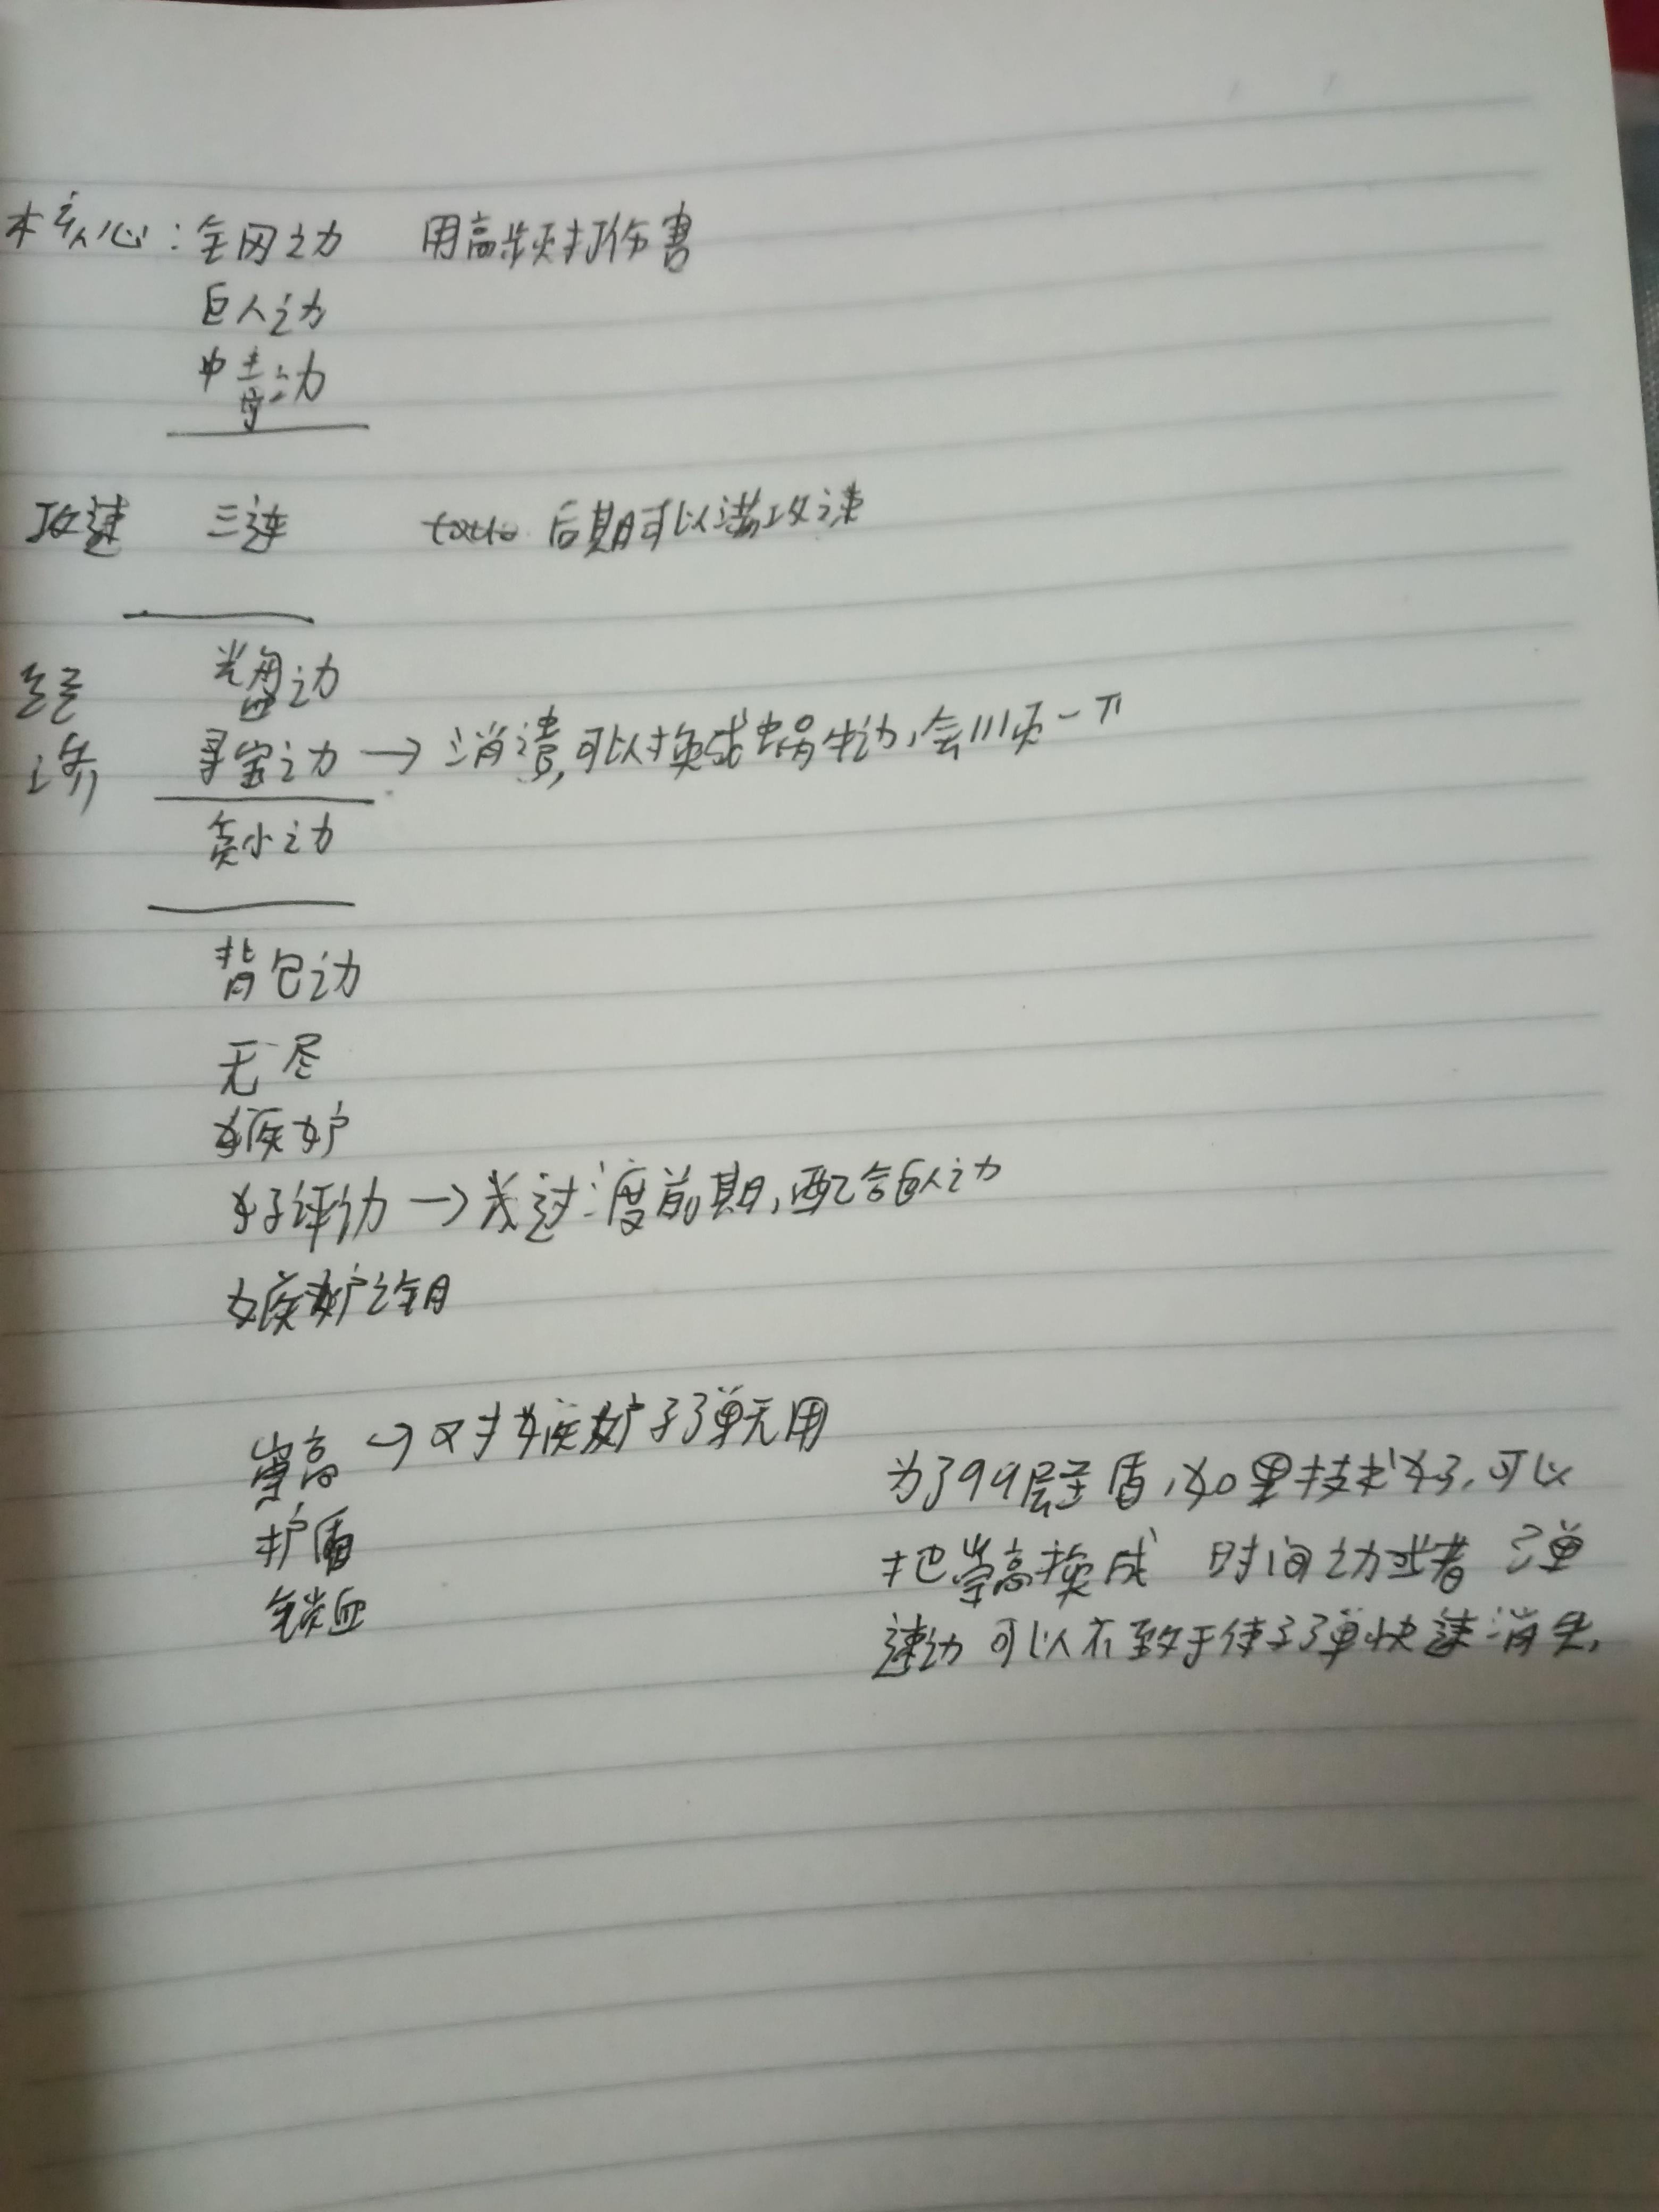 核心: 全网之力 用高频打伤害
巨人之力
中毒之力
攻速 三连 后期可以满攻速
经济
光盘之力
寻宝之力 → 消费,可以换成蜗牛之力,会顺一
贪小之力
背包之力
无尽
嫉妒
好评之力 → 为过渡前期,配合巨人之力
嫉妒之钥
崇高 → 对嫉妒子弹无用
护盾
锁血
为了99层圣盾,如果技术好,可以
把崇高换成 时间之力或者 子弹
速之力 可以不致于使子弹快速消失,